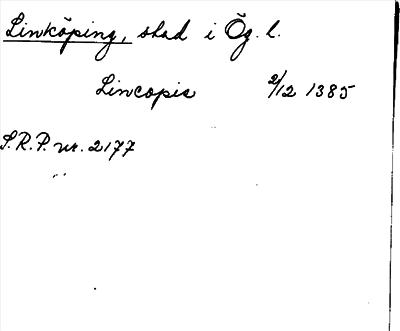 Linköping, stad i Ög. l.
Lincopie 2/12 1385
S.R.P. nr. 2177